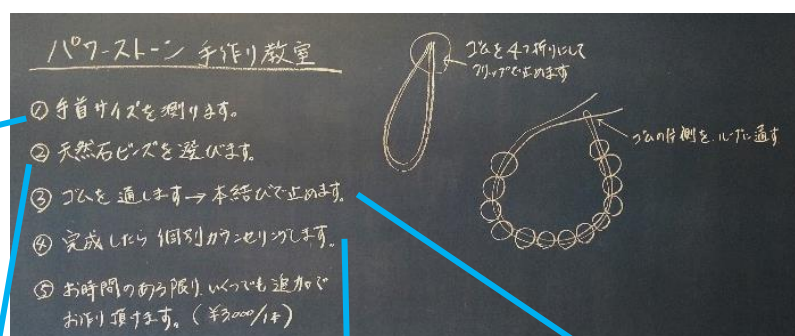 パワーストーン 手作り教室
① 手首サイズを測ります。
② 天然石ビーズを選びます。
③ ゴムを通します→本結びで止めます。
④ 完成したら個別カウンセリングします。
⑤ お時間のある限り、いくつでも追加で
お作り頂けます。(¥3,000/1本)
ゴムを4つ折りにして
クリップで止めます
ゴムの片側を、ループに通す